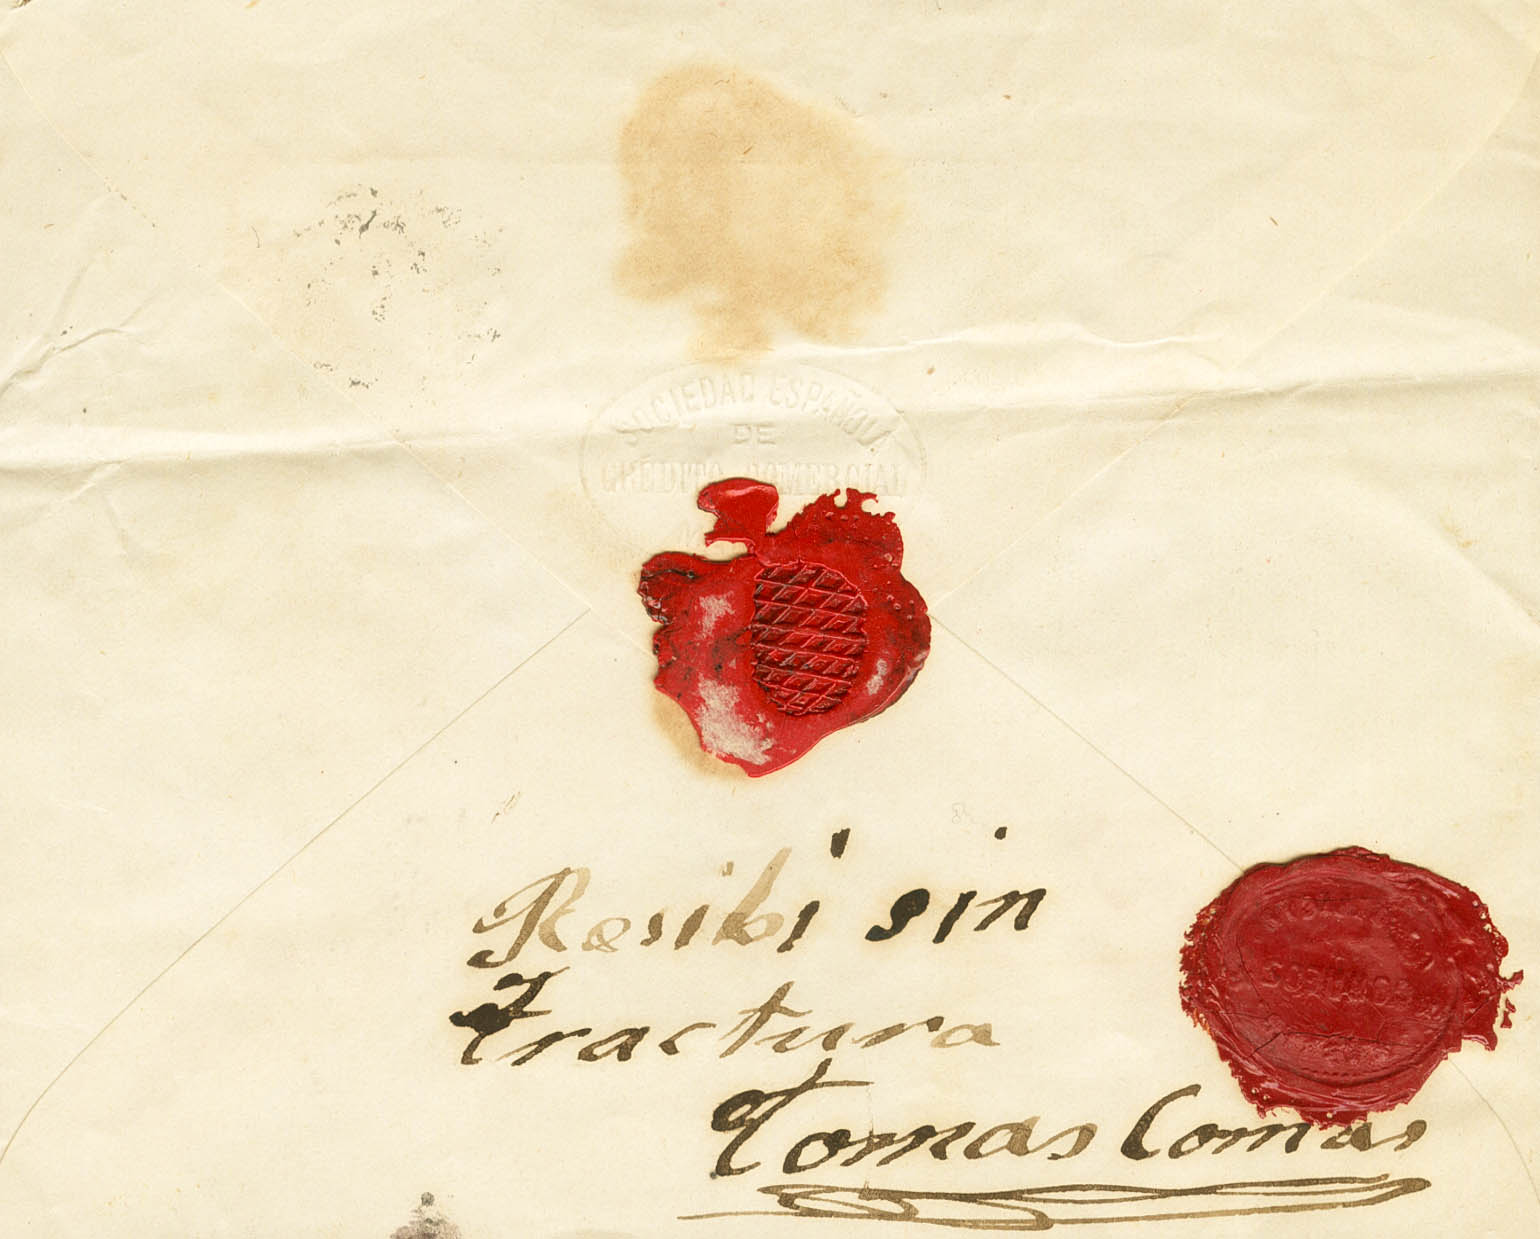 SOCIEDAD ESPAÑOLA
DE
CRÉDITO COMERCIAL
Resibi sin
Fractura
Tomas Comas